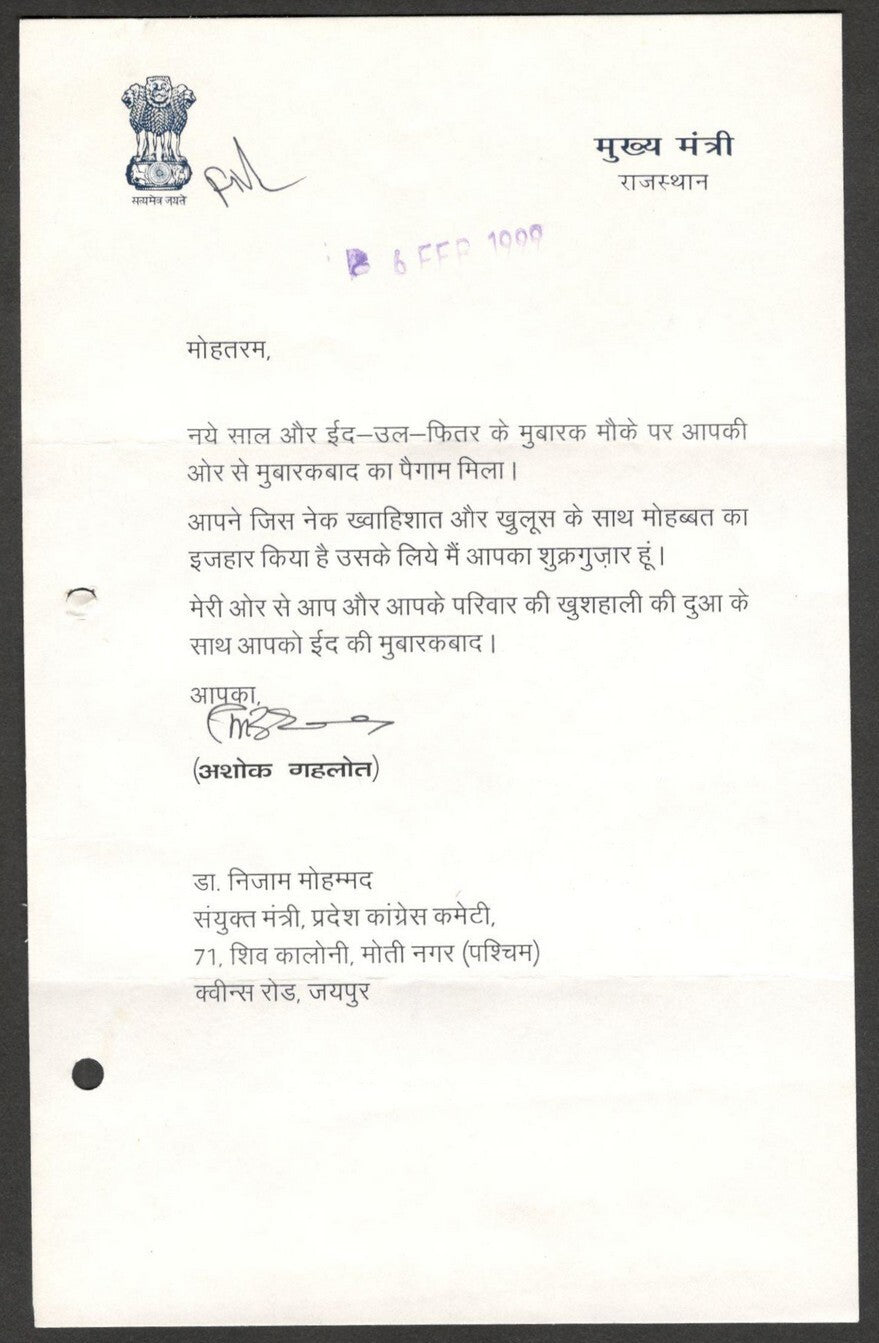 सत्यमेव जयते
मुख्य मंत्री
राजस्थान
6 FEB 1999
मोहतरम,
नये साल और ईद–उल–फितर के मुबारक मौके पर आपकी
ओर से मुबारकबाद का पैगाम मिला।
आपने जिस नेक ख्वाहिशात और खुलूस के साथ मोहब्बत का
इजहार किया है उसके लिये मैं आपका शुक्रगुज़ार हूं।
मेरी ओर से आप और आपके परिवार की खुशहाली की दुआ के
साथ आपको ईद की मुबारकबाद।
आपका,
(अशोक गहलोत)
डा. निजाम मोहम्मद
संयुक्त मंत्री, प्रदेश कांग्रेस कमेटी,
71, शिव कालोनी, मोती नगर (पश्चिम)
क्वीन्स रोड, जयपुर